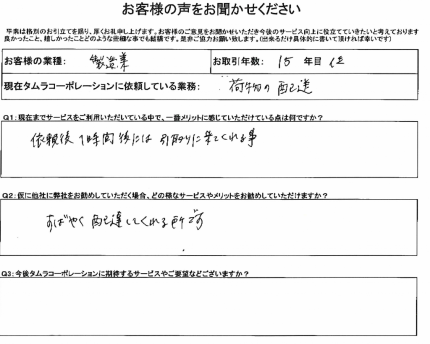 お客様の声をお聞かせください
平素は格別のお引立てを賜り、厚くお礼申し上げます。お客様のご意見をお聞かせいただき今後のサービス向上に役立てていきたいと考えております
良かったこと、嬉しかったことどのような些細な事でも結構です。是非ご協力お願い致します。(出来るだけ具体的に書いて頂ければ幸いです)
お客様の業種: 製造業 お取引年数: 15 年目 位
現在タムラコーポレーションに依頼している業務: 荷物の配達
Q1:現在までサービスをご利用いただいている中で、一番メリットに感じていただけている点は何ですか?
依頼後 1時間後には 引取りに来てくれる事
Q2:仮に他社に弊社をお勧めしていただく場合、どの様なサービスやメリットをお勧めしていただけますか?
すばやく 配達してくれる所です
Q3:今後タムラコーポレーションに期待するサービスやご要望などございますか?